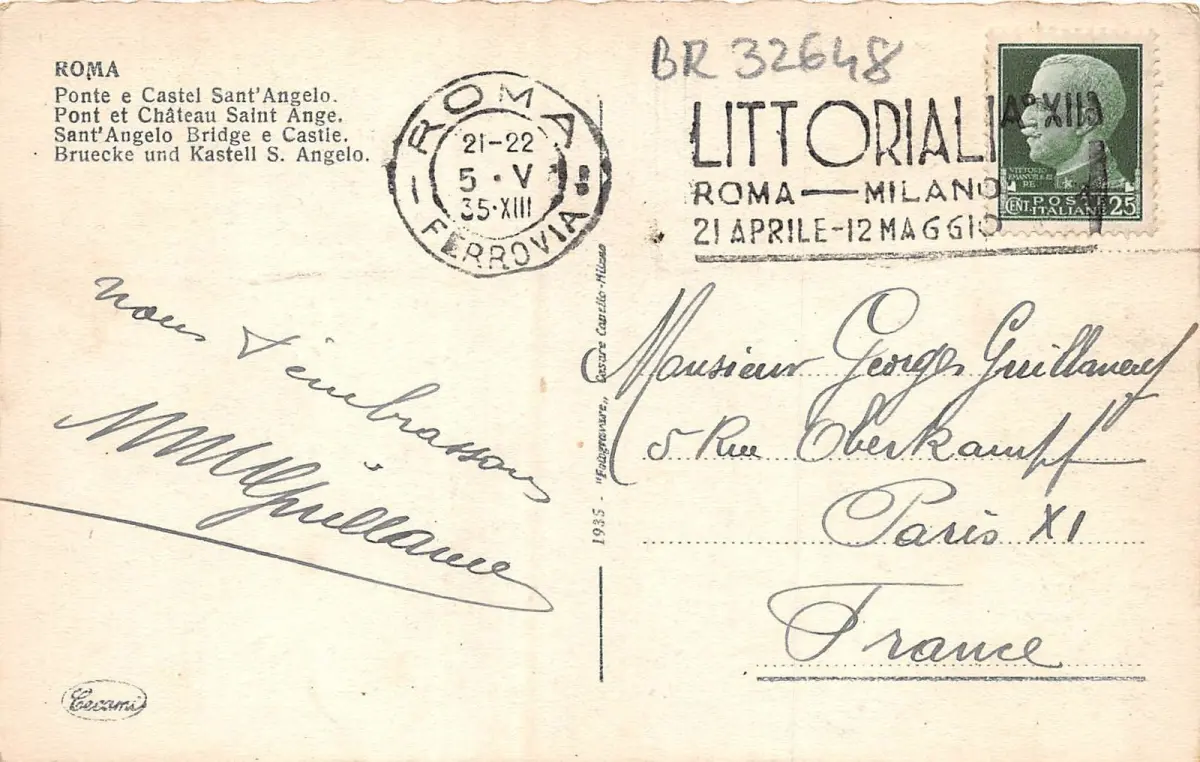 ROMA
Ponte e Castel Sant'Angelo.
Pont et Château Saint Ange.
Sant'Angelo Bridge e Castle.
Bruecke und Kastell S. Angelo.
ROMA
21-22
5·V
35·XIII
FERROVIA
BR 32648
LITTORIALI Aº XIII
ROMA — MILANO
21 APRILE-12 MAGGIO
VITTORIO
RE
CENT. POSTE
ITALIANE 25
nous t'embrassons
Guillaume
1935 - "Fotogravure" Cesare Capello - Milano
Monsieur Georges Guillaume
5 Rue Oberkampf
Paris XI
France
Cecami